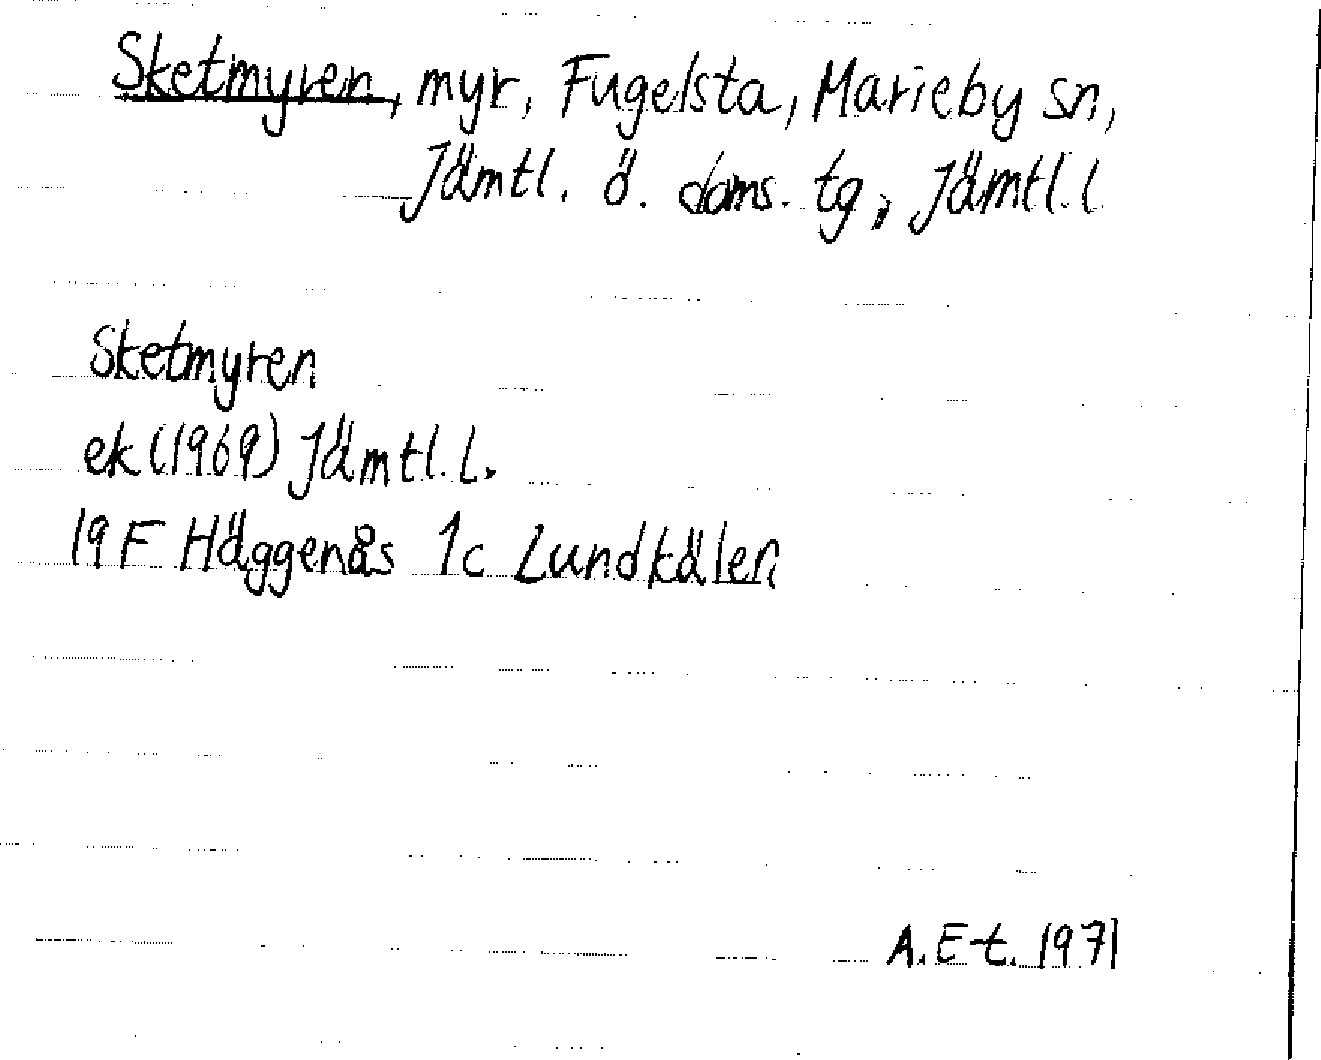 Sketmyren, myr, Fugelsta, Marieby sn,
Jämtl. ö. doms. tg, Jämtl. l
Sketmyren
ek (1969) Jämtl. L.
19 F Häggenås 1c Lundkälen
A. E-t. 1971